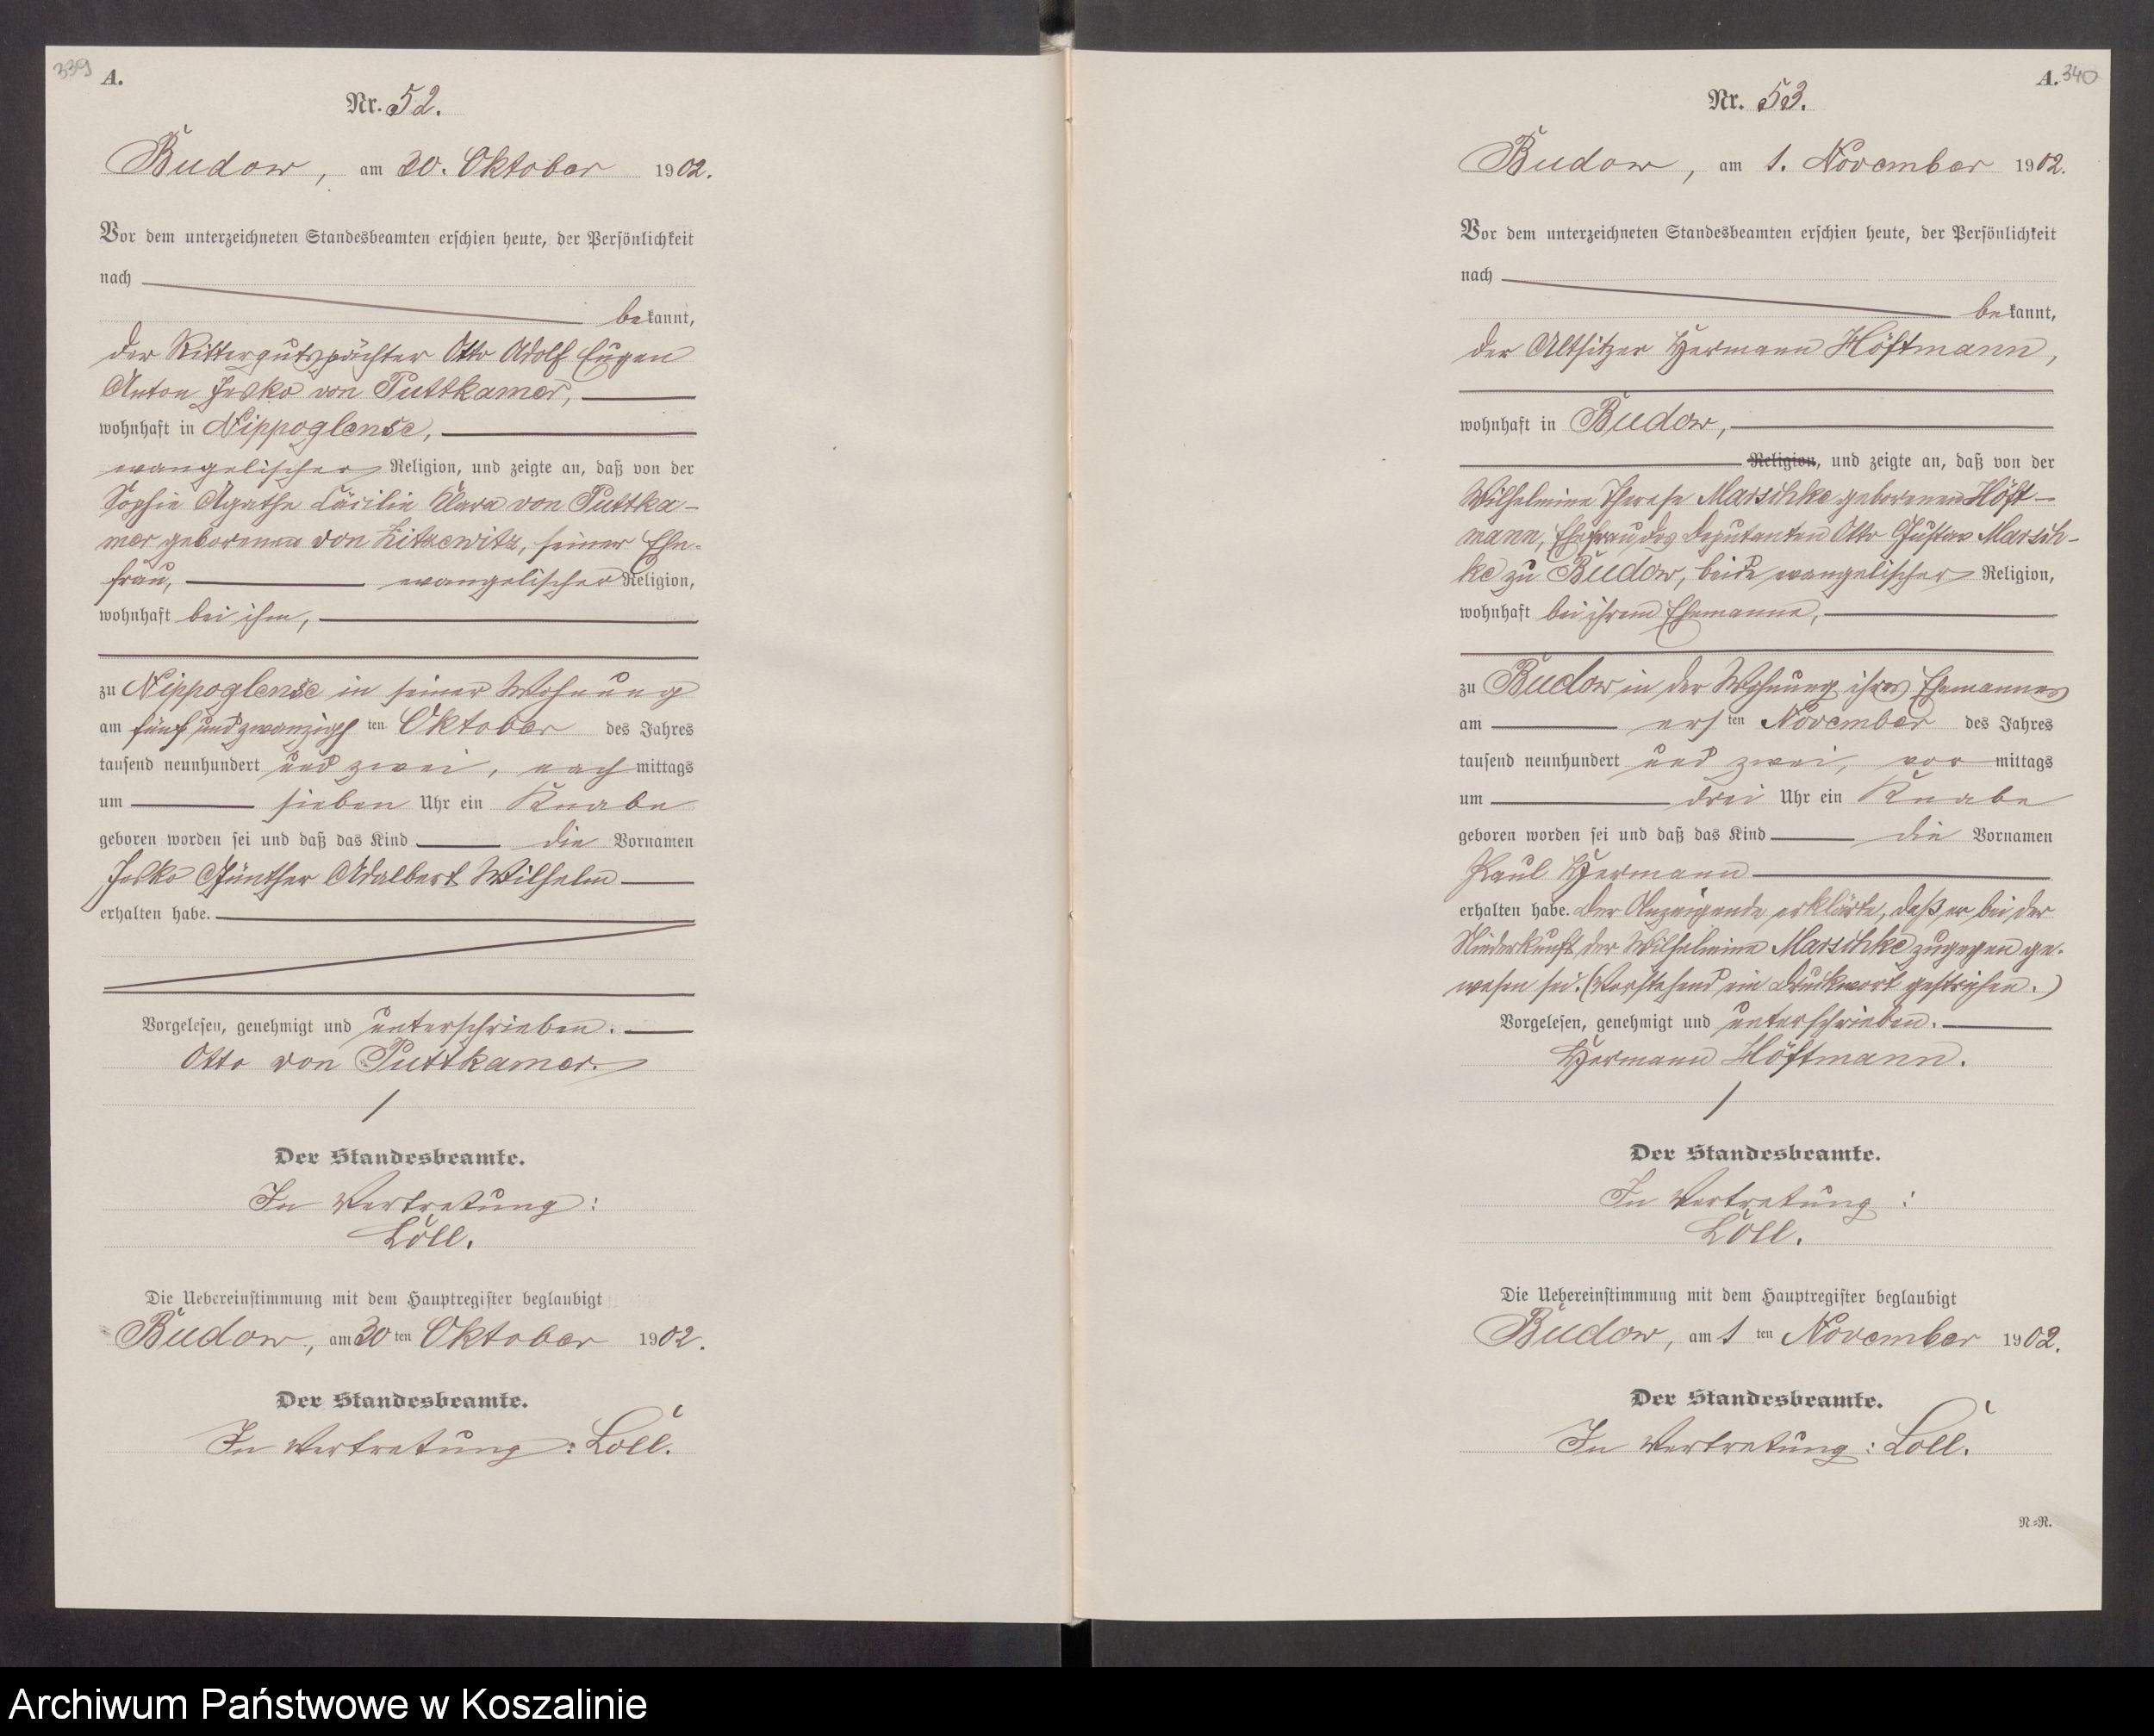 339
A.
Nr. 52.
Budow, am 30. Oktober 1902.
Vor dem unterzeichneten Standesbeamten erschien heute, der Persönlichkeit
nach
bekannt,
der Rittergutspächter Otto Adolf Eugen
Anton Jesko von Puttkamer,
wohnhaft in Nippoglense,
evangelischer Religion, und zeigte an, daß von der
Sophie Agathe Cäcilie Klara von Puttka-
mer geborenen von Zitzewitz, seiner Ehe-
frau, evangelischer Religion,
wohnhaft bei ihm,
zu Nippoglense in seiner Wohnung
am fünf und zwanzigsten Oktober des Jahres
tausend neunhundert und zwei, nachmittags
um sieben Uhr ein Knabe
geboren worden sei und daß das Kind die Vornamen
Jesko Günther Adalbert Wilhelm
erhalten habe.
Vorgelesen, genehmigt und unterschrieben.
Otto von Puttkamer.
Der Standesbeamte.
In Vertretung:
Loll.
Die Uebereinstimmung mit dem Hauptregister beglaubigt
Budow, am 30ten Oktober 1902.
Der Standesbeamte.
In Vertretung: Loll.
A. 340
Nr. 53.
Budow, am 1. November 1902.
Vor dem unterzeichneten Standesbeamten erschien heute, der Persönlichkeit
nach
bekannt,
der Altsitzer Hermann Höftmann,
wohnhaft in Budow,
Religion, und zeigte an, daß von der
Wilhelmine Therese Marschke geborenen Höft-
mann, Ehefrau des Deputanten Otto Gustav Marsch-
ke zu Budow, beide evangelischer Religion,
wohnhaft bei ihrem Ehemanne,
zu Budow in der Wohnung ihres Ehemannes
am ersten November des Jahres
tausend neunhundert und zwei, vormittags
um drei Uhr ein Knabe
geboren worden sei und daß das Kind die Vornamen
Paul Hermann
erhalten habe. Der Anzeigende erklärte, daß er bei der
Niederkunft der Wilhelmine Marschke zugegen ge-
wesen sei. (Vorstehend ein Druckwort gestrichen.)
Vorgelesen, genehmigt und unterschrieben.
Hermann Höftmann.
Der Standesbeamte.
In Vertretung:
Loll.
Die Uebereinstimmung mit dem Hauptregister beglaubigt
Budow, am 1ten November 1902.
Der Standesbeamte.
In Vertretung: Loll.
N=N.
Archiwum Państwowe w Koszalinie